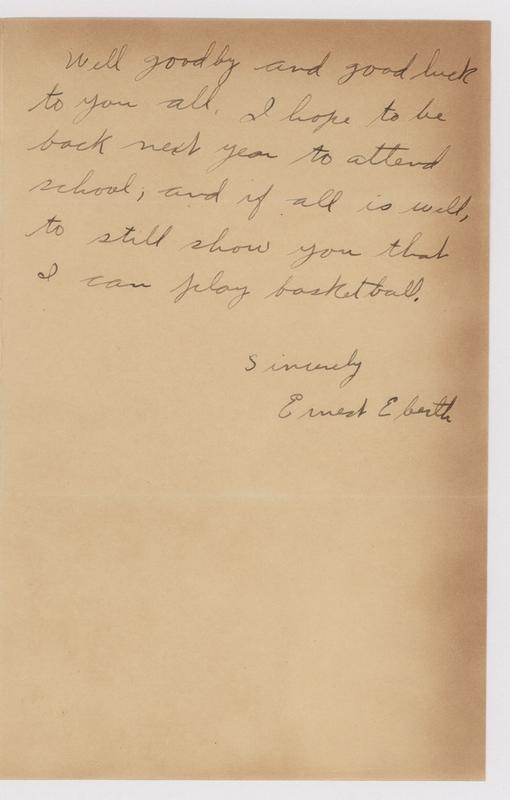 Well goodby and good luck
to you all. I hope to be
back next year to attend
school; and if all is well,
to still show you that
I can play basketball.
Sincerely
Ernest Eberth